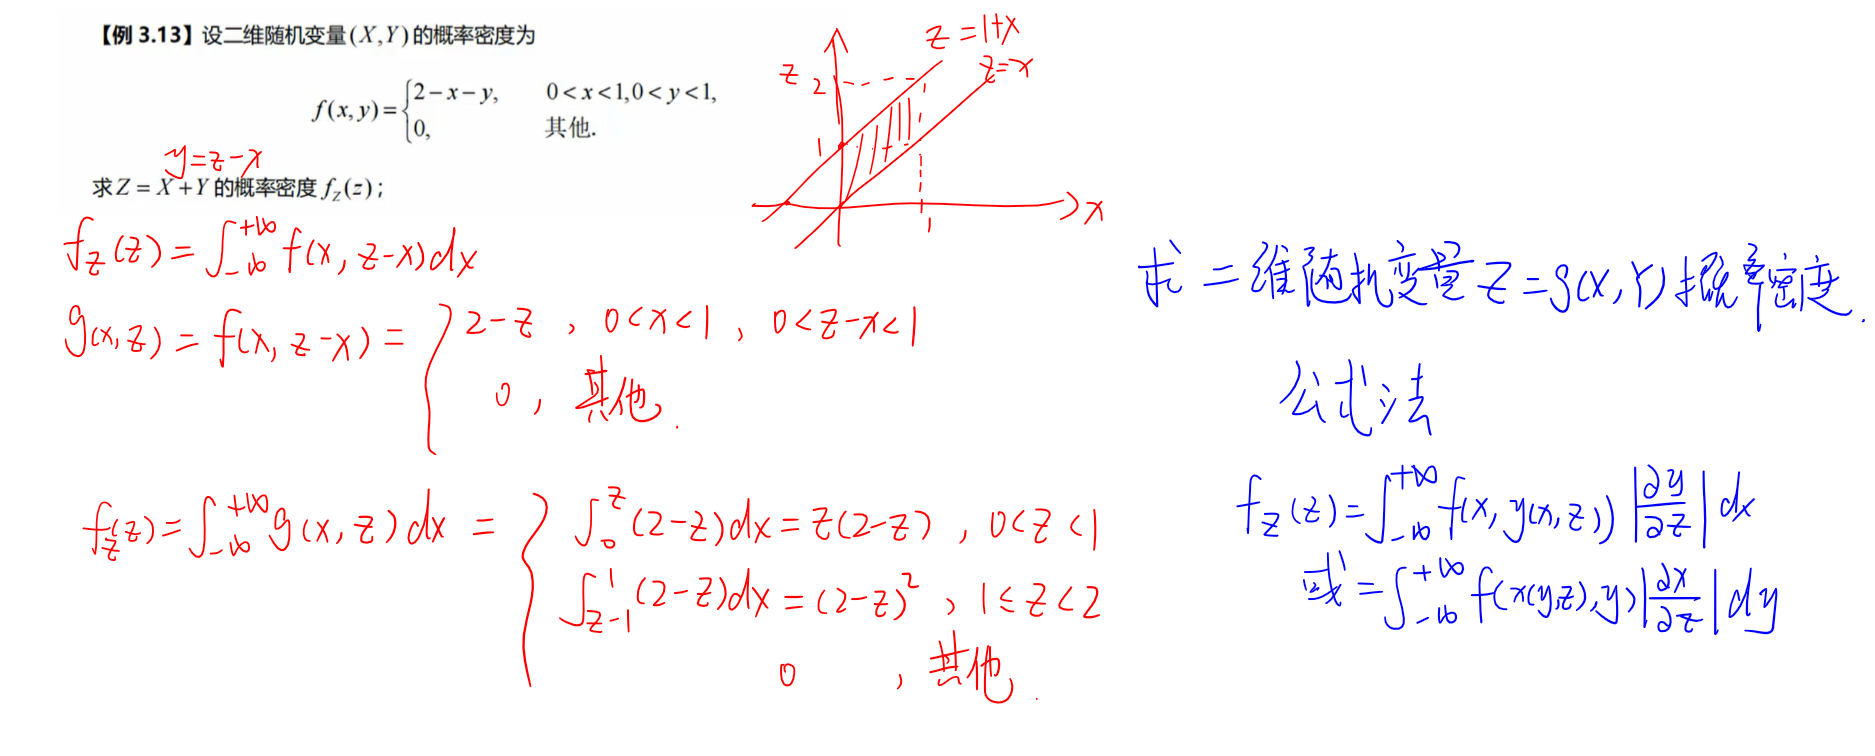 【例 3.13】设二维随机变量(X,Y)的概率密度为
f(x,y)={2-x-y, 0<x<1,0<y<1,
0, 其他.
y=z-x
求Z=X+Y的概率密度f_Z(z);
z=1+x
z=x
z
2
1
1
x
f_Z(z)=∫_{-∞}^{+∞}f(x,z-x)dx
g(x,z)=f(x,z-x)={2-z, 0<x<1, 0<z-x<1
0, 其他.
f_Z(z)=∫_{-∞}^{+∞}g(x,z)dx={∫_0^z(2-z)dx=z(2-z), 0<z<1
∫_{z-1}^1(2-z)dx=(2-z)^2, 1≤z<2
0, 其他.
求二维随机变量Z=g(X,Y)概率密度.
公式法
f_Z(z)=∫_{-∞}^{+∞}f(x,y(x,z))|∂y/∂z|dx
或=∫_{-∞}^{+∞}f(x(y,z),y)|∂x/∂z|dy